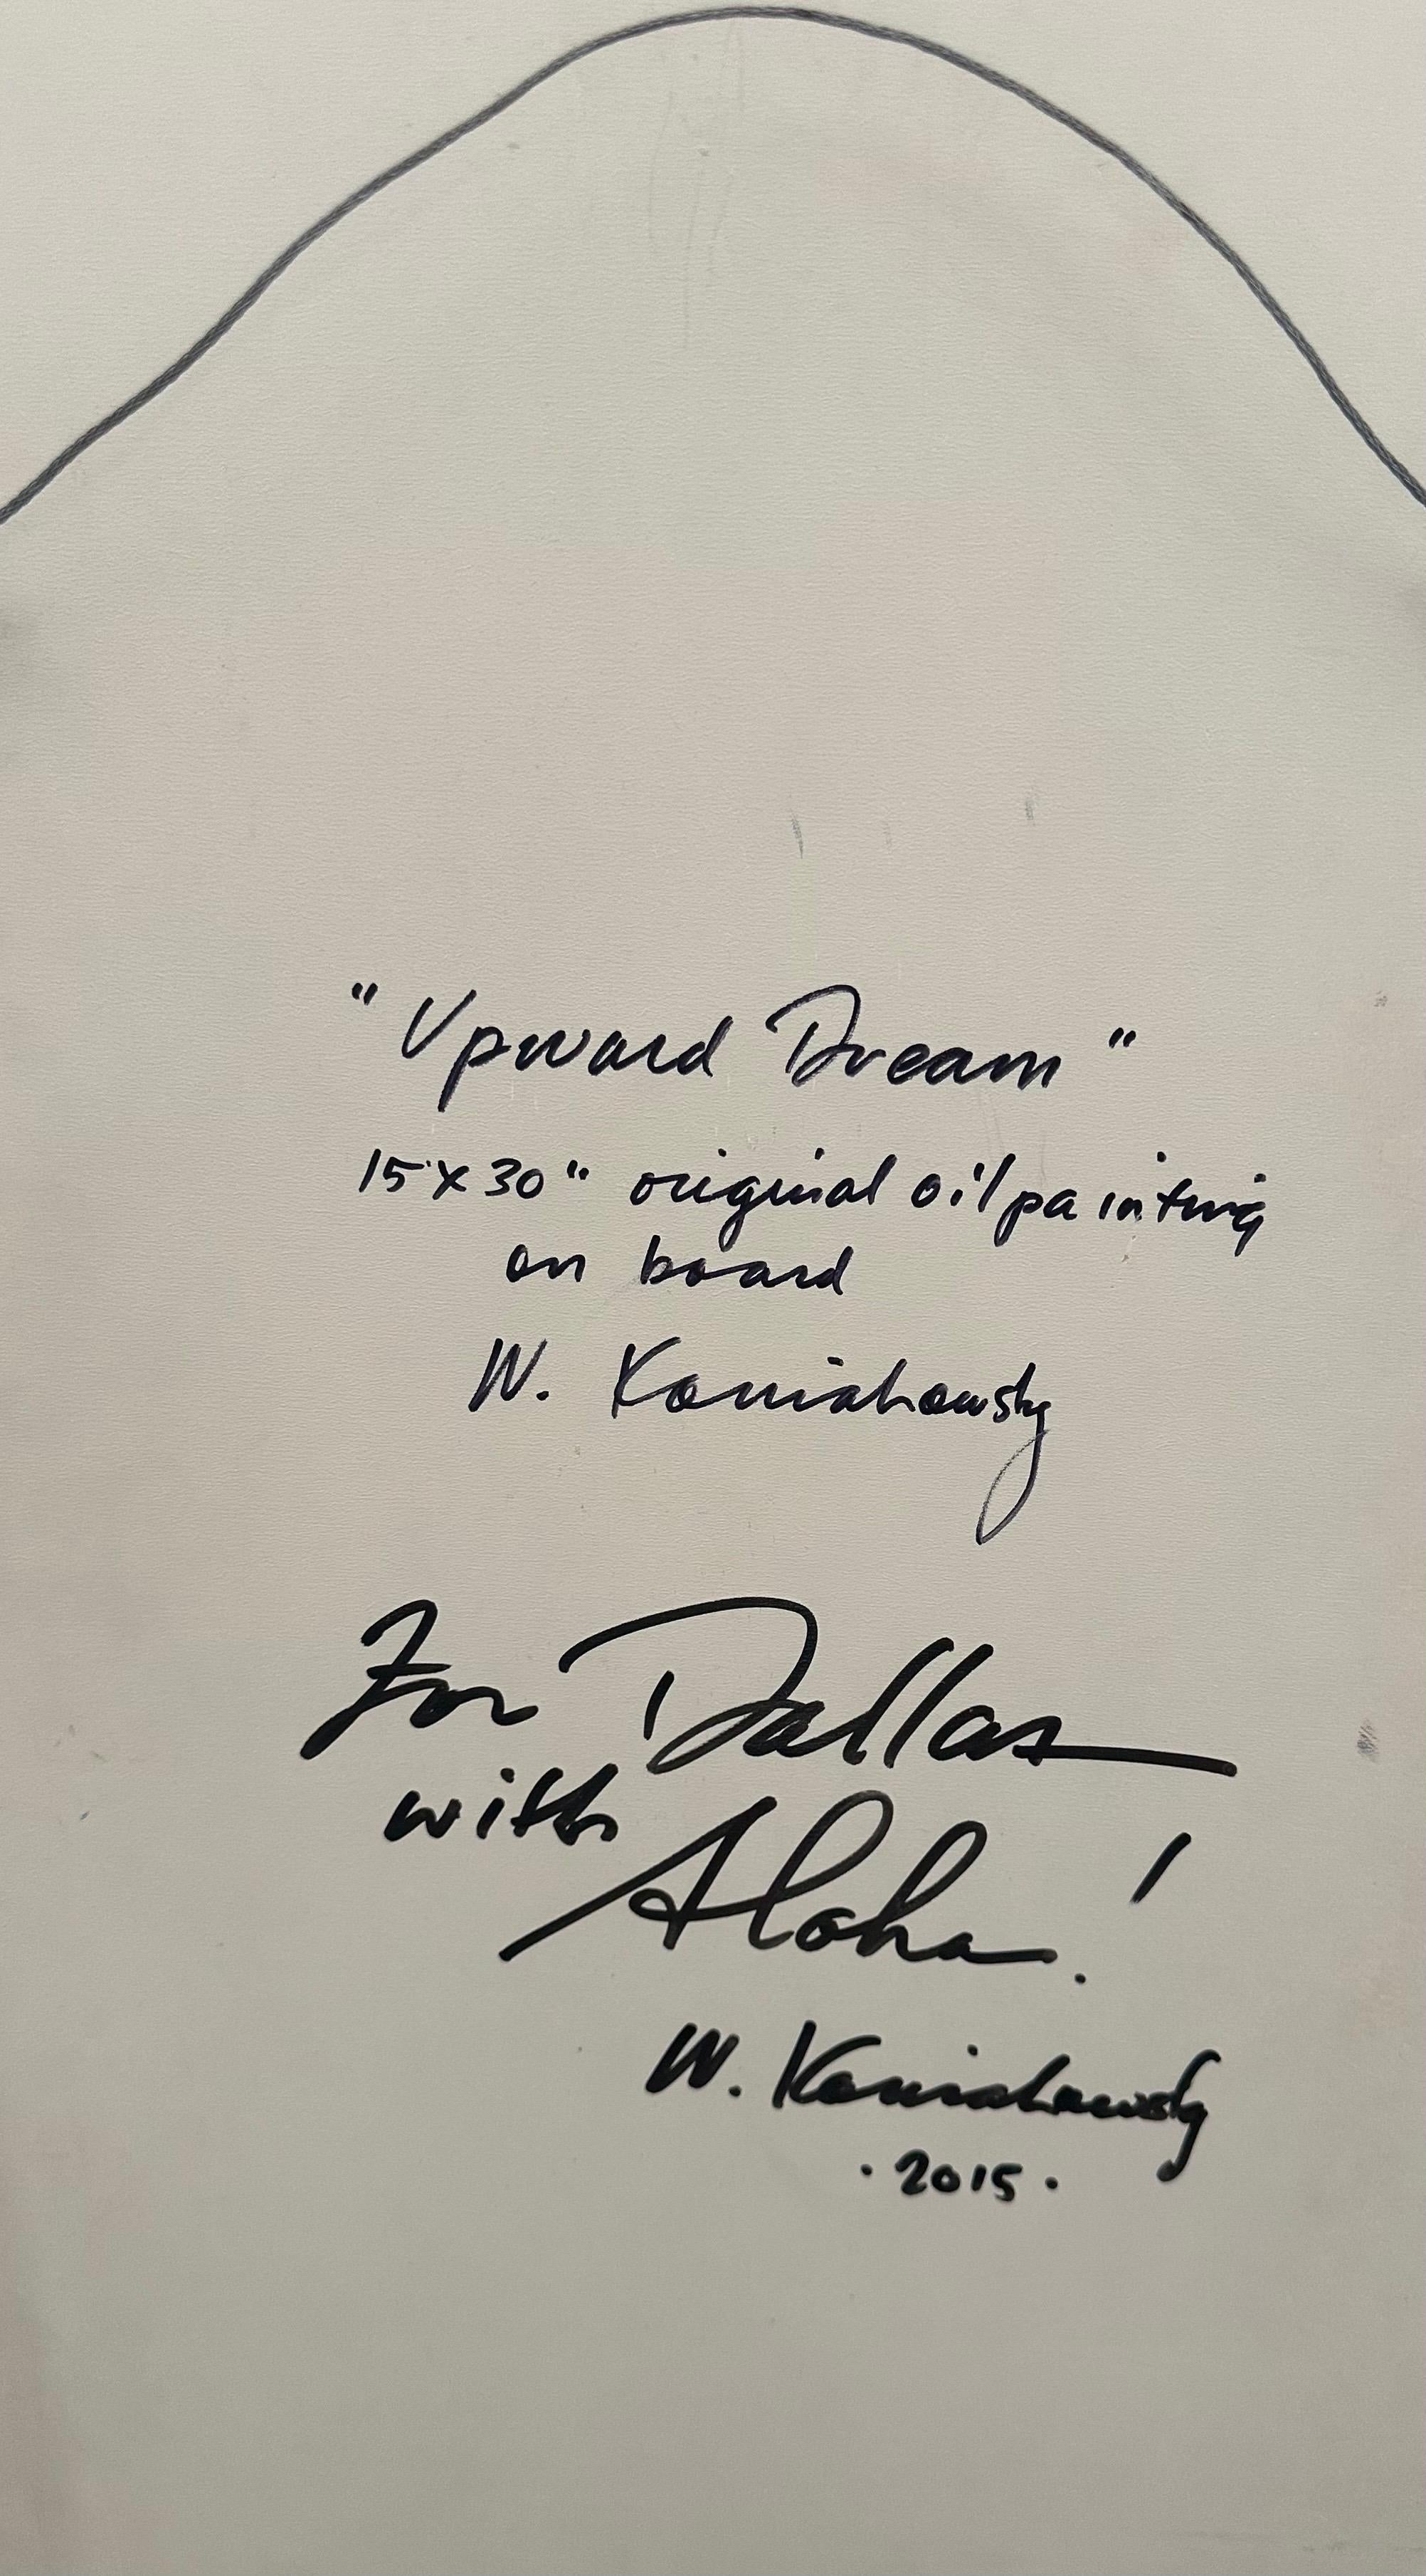 "Upward Dream"
15 x 30" original oil painting
on board
W. Koniakowsky
For Dallas
with
Aloha!
W. Koniakowsky
. 2015 .